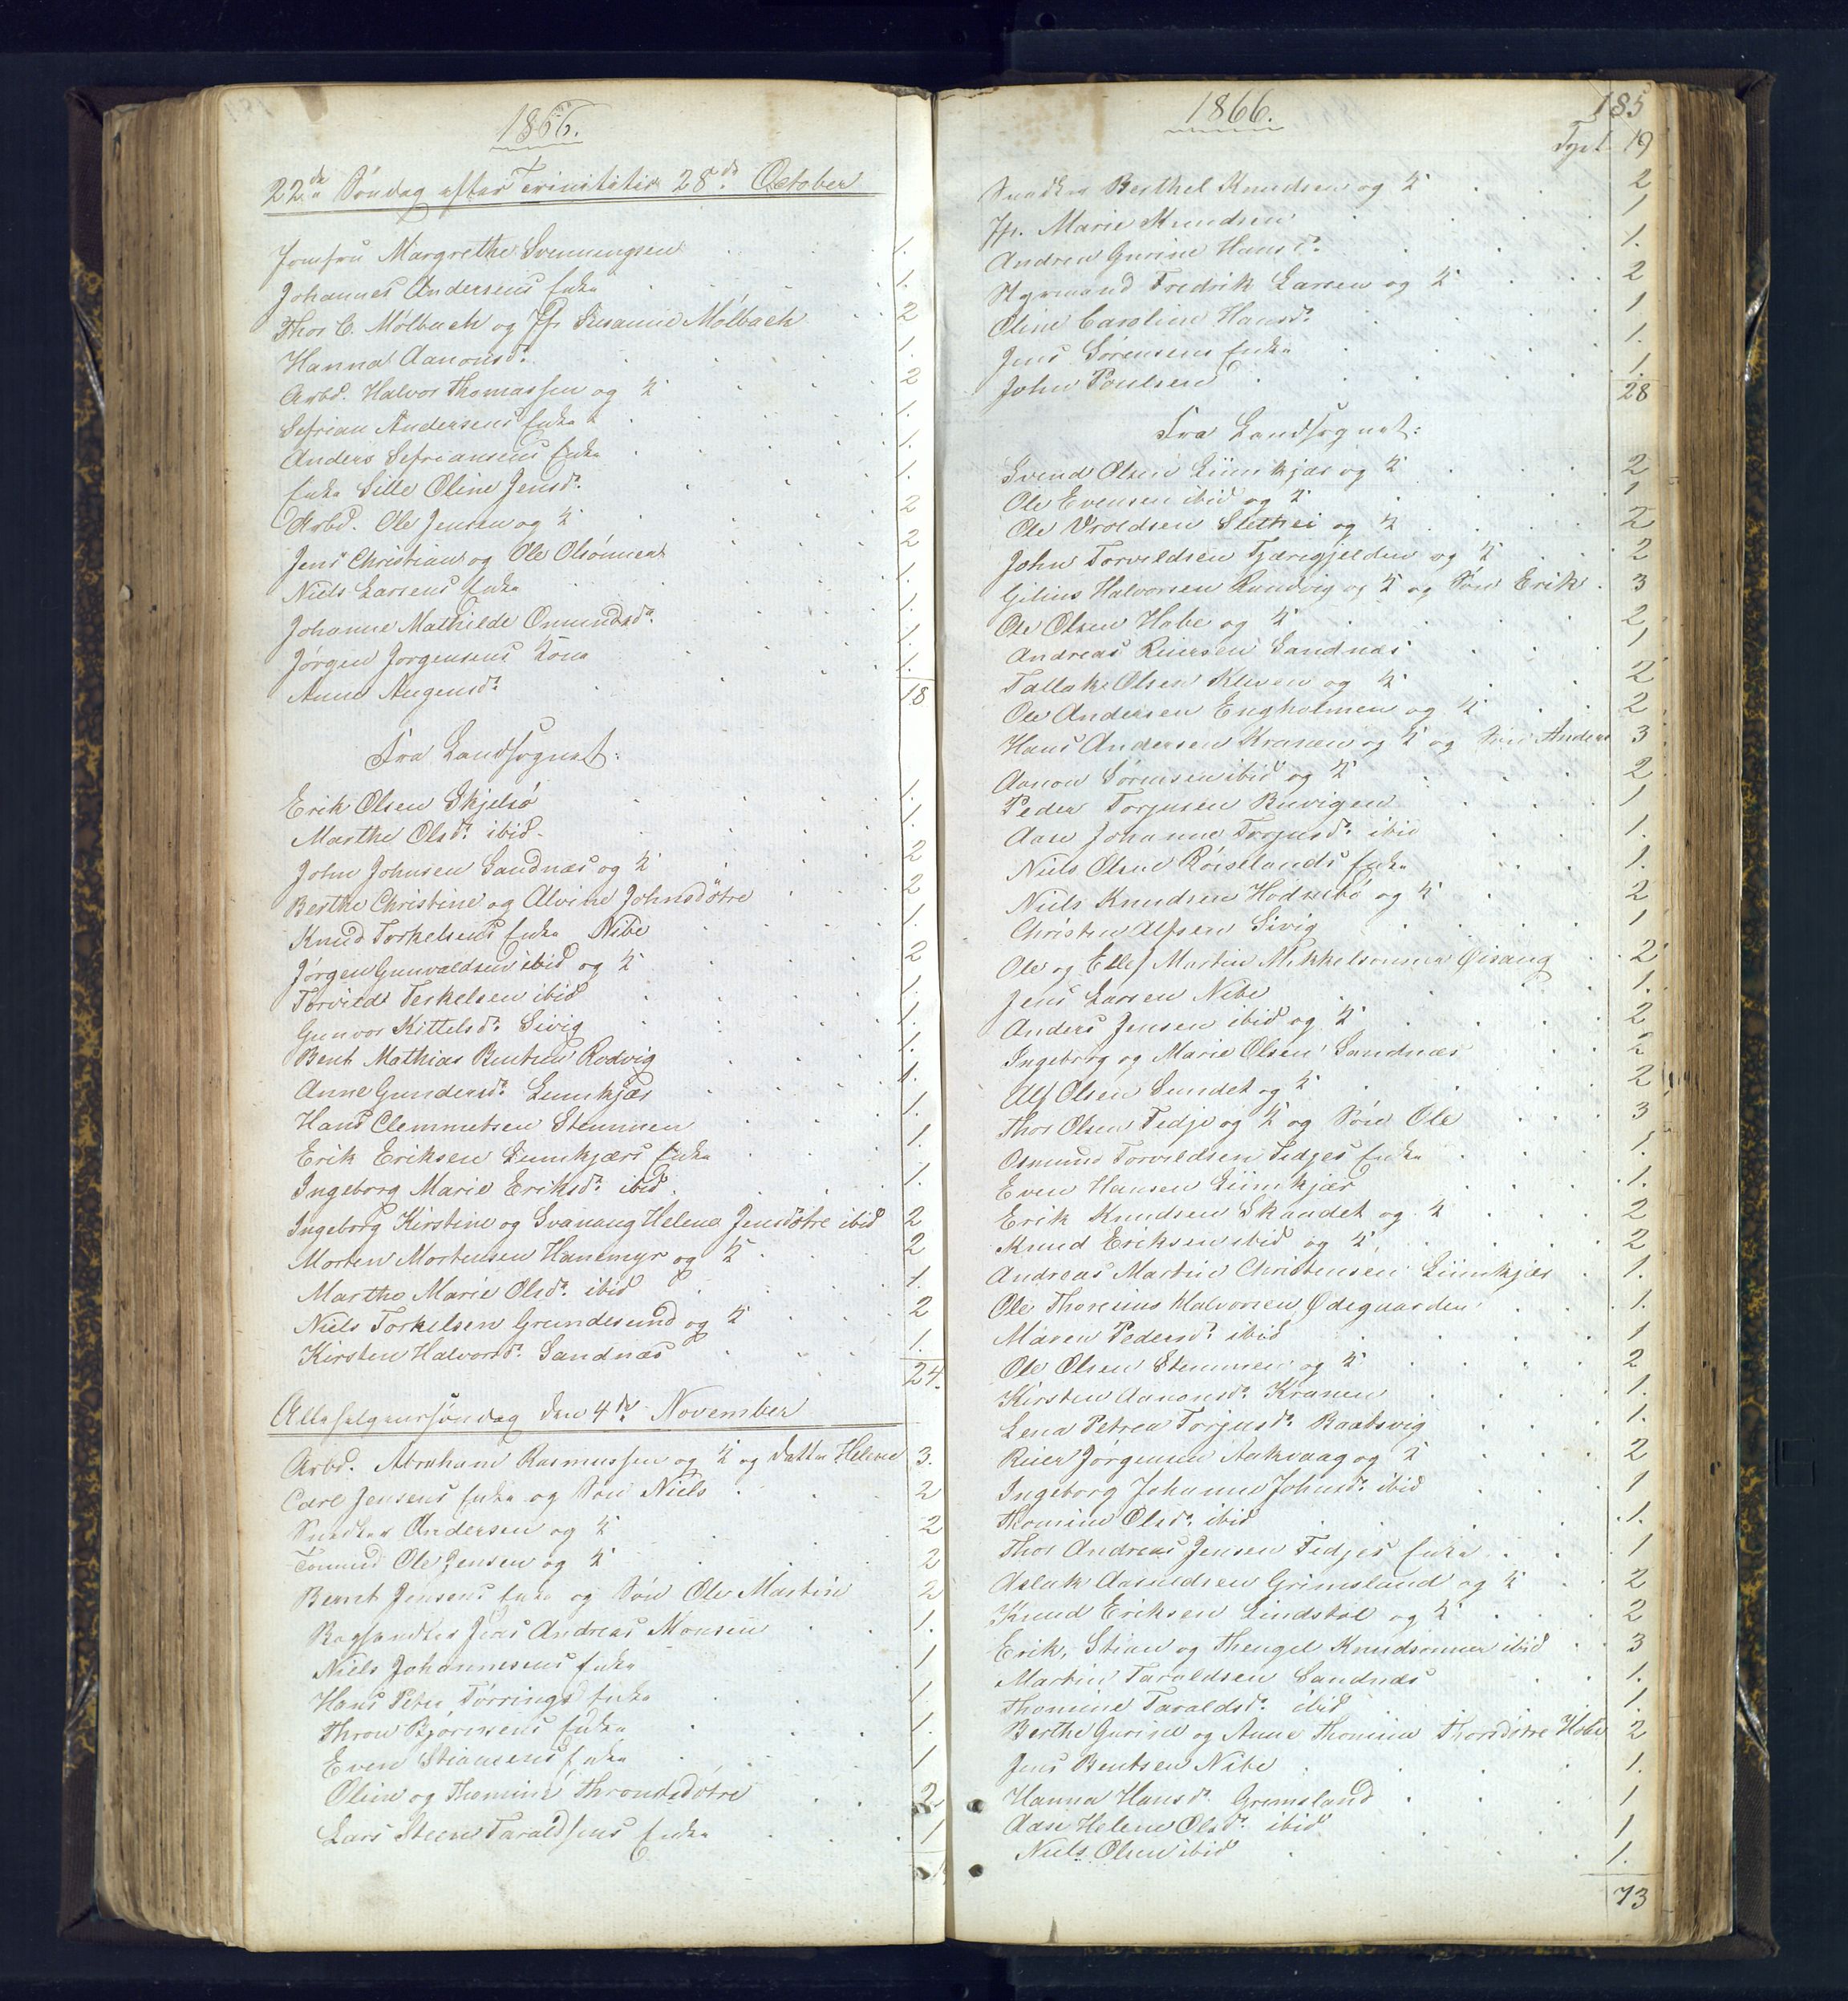 1866.
22de Søndag efter Trinitatis 28de October
Jomfru Margrethe Svenningsen 1.
Johannes Andersens Enke 1.
Thor C. Mølbach og Jfr Susanne Mølbach 2
Hanna Aanonsdr. 1.
Arbd. Halvor Thomassen og K 2
Sefrian Andersens Enke 1.
Anders Sefriansens Enke 1.
Enke Sille Oline Jensdr. 1.
Arbd. Ole Jensen og K 2
Jens Christian og Ole Olsønner 2
Niels Larsens Enke 1.
Johanne Mathilde Omundsdr. 1.
Jørgen Jorgensens Kone 1.
Anne Augensdr. 1.
18
Fra Landsognet:
Erik Olsen Skjelsø 1.
Marthe Olsdr. ibid. 1.
John Johnsen Sandnæs og K 2
Berthe Christine og Alvine Johnsdøtre 2
Knud Torkelsens Enke Nibe 1.
Jørgen Gunvaldsen ibid og K 2
Torvild Terkelsen ibid 1.
Gunvor Kittelsdr. Sivig 1.
Bent Mathias Bentsen Rodvig 1.
Anne Gundersdr. Liinkjær 1.
Hans Clemmetsen Stemmen 1.
Erik Eriksen Liinkjærs Enke 1.
Ingeborg Marie Eriksdr. ibid. 1.
Ingeborg Kirstine og Svanaug Helene Jensdøtre ibid 2
Morten Mortensen Hanemyr og K 2
Marthe Marie Olsdr. ibid 1.
Niels Torkelsen Grundesund og K 2
Kirsten Halvorsdr. Sandnæs 1.
24.
Allehelgensøndag den 4de November
Arbd. Abraham Rasmussen og K og Datter Helene 3.
Carl Jensens Enke og Søn Niels 2
Snedker Andersen og K 2
Tømmd Ole Jensen og K 2
Bernt Jensens Enke og Søn Ole Martin 2
Jens Andreas Monsen 1.
Niels Johannesens Enke 1
Hans Peter Tørrings Enke 1.
Thron Bjørnsens Enke 1.
Even Stiansens Enke 1
Oline og Thomine Throndsdøtre 2
Lars Steen Taraldsens Enke 1
1866.
185
Tyet 19
Snedker Berthel Knudsen og K 2
Jfr. Marie Knudsen 1
Andrea Gurine Hansdr. 1.
Styrmand Fredrik Larsen og K 2
Oline Caroline Hansdr. 1
Jens Sørensens Enke 1.
John Poulsen 1.
28
Fra Landsognet:
Svend Olsen Liinkjær og K 2
Ole Evensen ibid og K 1
Ole Vroldsen Slethei og K 2
John Torvildsen Tjærigjelden og K 2
Gilius Halvorsen Rundvig og K og Søn Erik 3
Ole Olsen Habe og K 2
Andreas Reiersen Sandnæs 1
Tallak Olsen Kleven og K 2
Ole Andersen Engholmen og K 2
Hans Andersen Kranen og K og Søn Anders 3
Aanon Sørensen ibid og K 2
Peder Torjusen Buvigen 1
Aase Johanne Torjusdr. ibid 1.
Niels Olsen Røiselands Enke 1.
Niels Knudsen Hodnebø og K 2
Christen Alfsen Sivig 1
Ole og Ellef Martin Mikkelsønner Øisang 2
Jens Larsen Nibe 1.
Anders Jensen ibid og K 2
Ingeborg og Marie Olsen Sandnæs 2
Alf Olsen Sundet og K 2
Thor Olsen Fidje og K og Søn Ole 3
Osmund Torvildsen Fidjes Enke 1.
Even Hansen Liinkjær 1.
Erik Knudsen Skaadet og K 2
Knud Eriksen ibid og K 2
Andreas Martin Christensen Liinkjær 1.
Ole Thorenius Halvorsen Ødegaarden 1.
Maren Pedersdr. ibid 1
Ole Olsen Stemmen og K 2
Kirsten Aanonsdr. Kranen 1.
Lena Petrea Torjusdr. Raabsvig 1.
Reier Jørgensen Aakvaag og K 2
Ingeborg Johanne Johnsdr. ibid 1
Thomine Olsdr. ibid 1.
Thor Andreas Jensen Fidjes Enke 1
Aslak Aanildsen Grimsland og K 2
Knud Eriksen Lindstøl og K 2
Erik, Stian og Thengel Knudsønner ibid 3
Martin Taraldsen Sandnæs 1.
Thomine Taraldsdr. ibid 1.
Berthe Gurine og Anne Thomine Thorsdøtre Habe 2
Jens Bentsen Nibe 1.
Hanna Hansdr. Grimsland 1
Aase Helene Olsdr. ibid 1
Niels Olsen ibid 1.
73